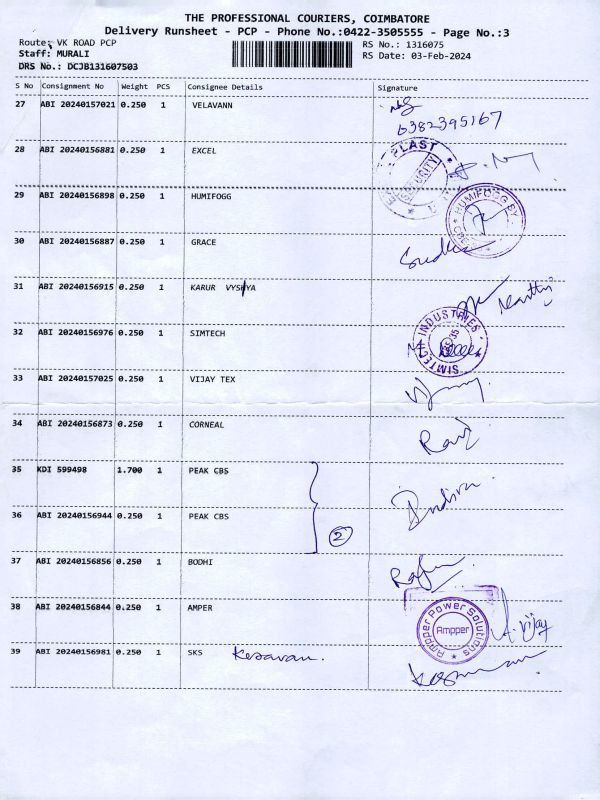 THE PROFESSIONAL COURIERS, COIMBATORE
Delivery Runsheet - PCP - Phone No.:0422-3505555 - Page No.:3
Route: VK ROAD PCP
RS No.: 1316075
Staff: MURALI
RS Date: 03-Feb-2024
DRS No.: DCJB131607503
S No Consignment No Weight PCS Consignee Details Signature
27 ABI 20240157021 0.250 1 VELAVANN
6382395167
28 ABI 20240156881 0.250 1 EXCEL
PLAST
SECURITY
29 ABI 20240156898 0.250 1 HUMIFOGG
HUMIFOGG BY
30 ABI 20240156887 0.250 1 GRACE
31 ABI 20240156915 0.250 1 KARUR VYSYA
32 ABI 20240156976 0.250 1 SIMTECH
SIMTECH INDUSTRIES
33 ABI 20240157025 0.250 1 VIJAY TEX
34 ABI 20240156873 0.250 1 CORNEAL
Ravi
35 KDI 599498 1.700 1 PEAK CBS
36 ABI 20240156944 0.250 1 PEAK CBS
2
Indira
37 ABI 20240156856 0.250 1 BODHI
38 ABI 20240156844 0.250 1 AMPER
Ampper Power Solutions
Ampper
A. Vijay
39 ABI 20240156981 0.250 1 SKS Kesavan.